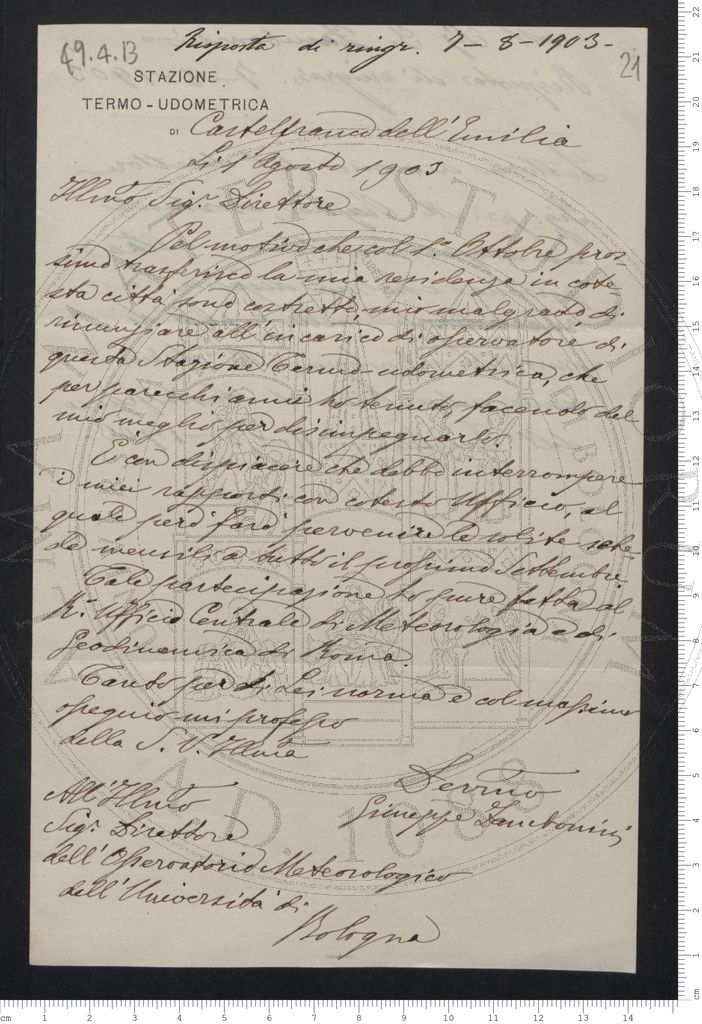 49.4.B
Risposta di ringr. 7-8-1903-
21
STAZIONE
TERMO-UDOMETRICA
DI Castelfranco dell'Emilia
Li 1 Agosto 1903
Illmo Sigr Direttore
Pel motivo che col 1° Ottobre pros-
simo trasferisco la mia residenza in cote
sta città sono costretto, mio malgrado di
rinunziare all'incarico di osservatore di
questa Stazione Termo-udometrica, che
per parecchi anni ho tenuto, facendo del
mio meglio per disimpegnarlo.
È con dispiacere che debbo interrompere
i miei rapporti con cotesto Ufficio, al
quale però farò pervenire le solite sche-
de mensili a tutto il prossimo Settembre.
Tale partecipazione ho pure fatta al
R.° Ufficio Centrale di Meteorologia e di
Geodinamica di Roma.
Tanto per di Lei norma e col massimo
ossequio mi professo
della S. V. Illma
Devmo
Giuseppe Zambonini
All'Illmo
Sigr Direttore
dell'Osservatorio Meteorologico
dell'Università di
Bologna